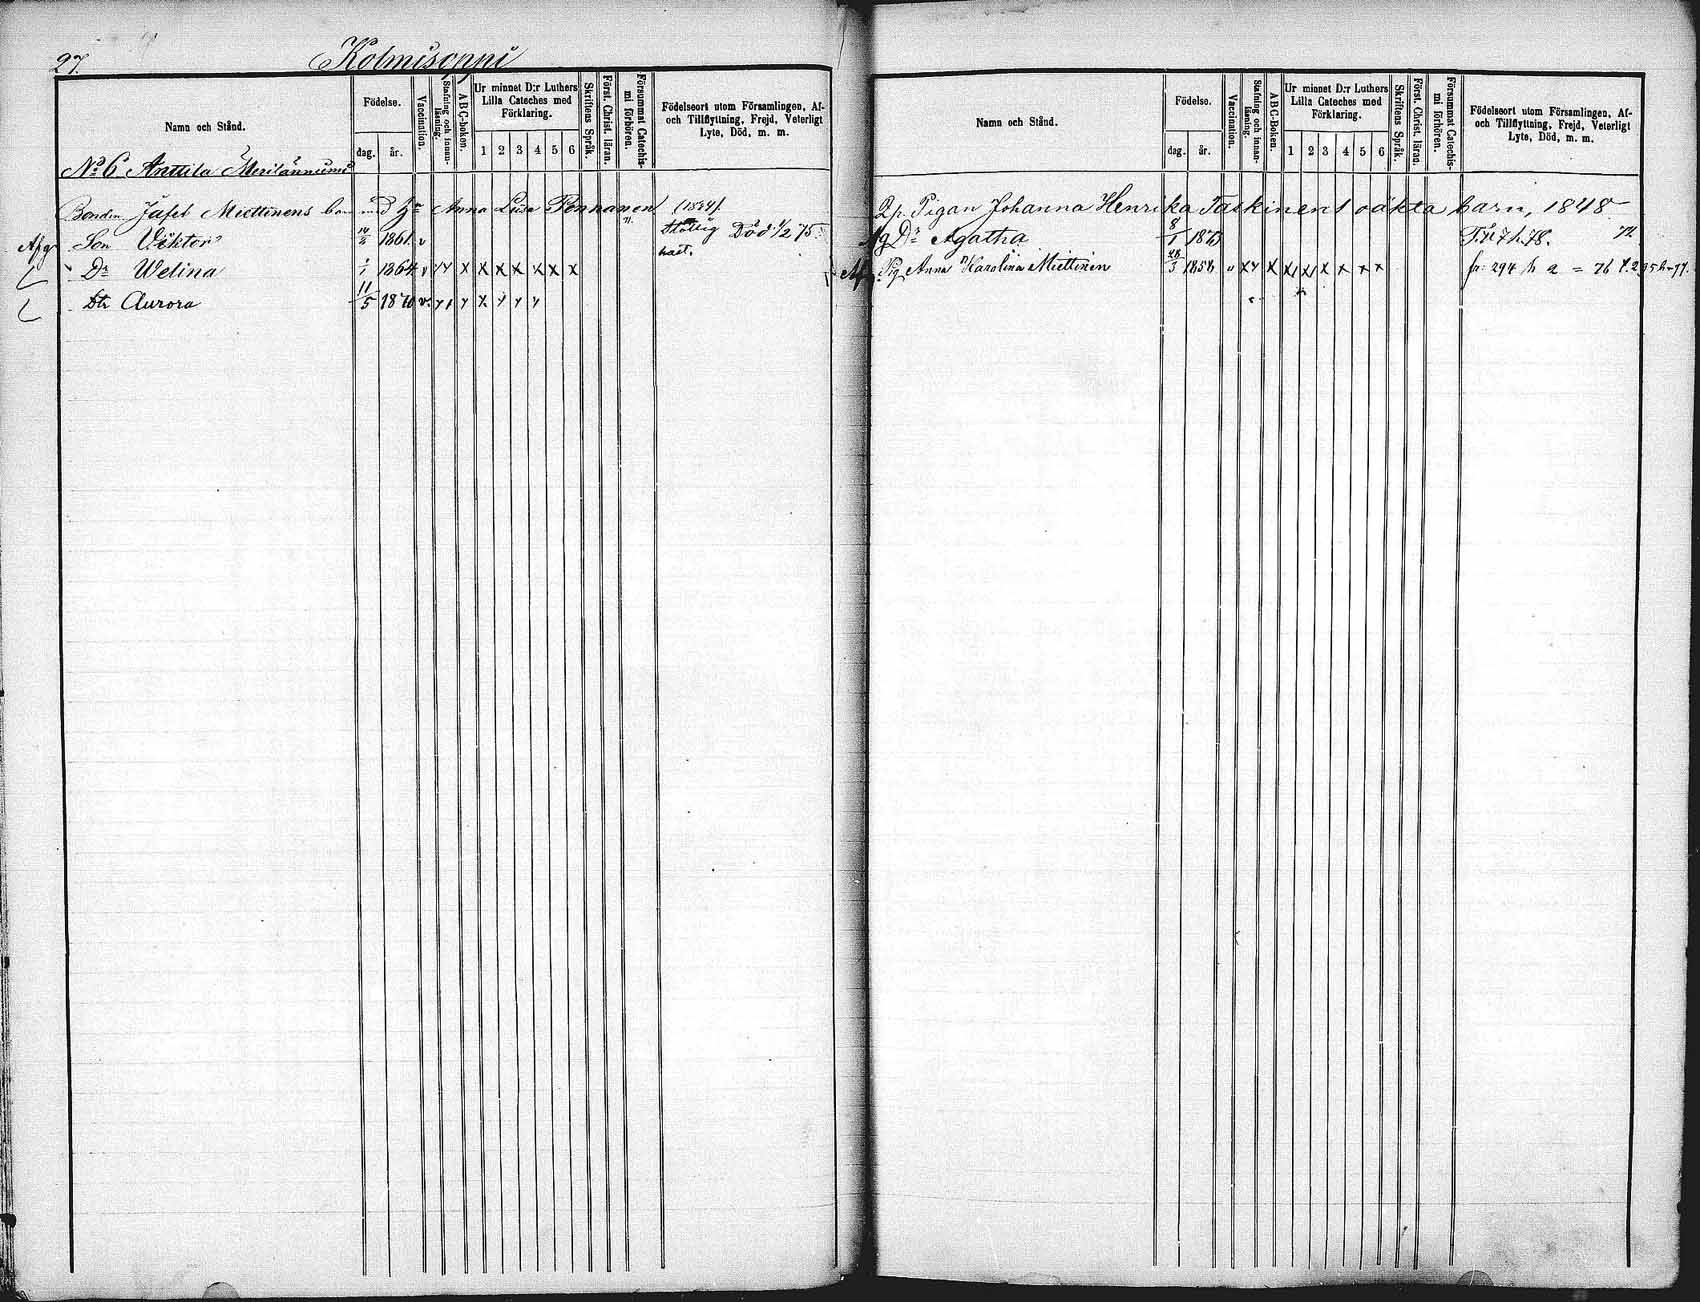 27.
Kolmisoppi
Namn och Stånd.
Födelse.
dag. år.
Vaccination.
Stafning och innan-läsning.
A B C-boken.
Ur minnet D:r Luthers
Lilla Cateches med
Förklaring.
1 2 3 4 5 6
Skriftens Språk.
Först. Christ. läran.
Försummat Catechis-mi förhören.
Födelseort utom Församlingen, Af-
och Tillflyttning, Frejd, Veterligt
Lyte, Död, m. m.
No 6 Anttila
Bonden Jafet Miettinens barn med Anna Lisa Pennanen (1824)
Afg Son Viktor 1861 v Död 1/2 75
Dr Welina 1/1 1864 v x x x x x x x x
Dtr Aurora 11/5 1870 v.
Namn och Stånd.
Födelse.
dag. år.
Vaccination.
Stafning och innan-läsning.
A B C-Boken.
Ur minnet D:r Luthers
Lilla Cateches med
Förklaring.
1 2 3 4 5 6
Skriftens Språk.
Först. Christ. läran.
Försummat Catechis-mi förhören.
Födelseort utom Församlingen, Af-
och Tillflyttning, Frejd, Veterligt
Lyte, Död, m. m.
Pigan Johanna Henrika Taskinens oäkta barn, 1848
Dr Agatha 8/1
Pig. Anna Karolina Miettinen 28/3 1858 fr: 294 h a = 76